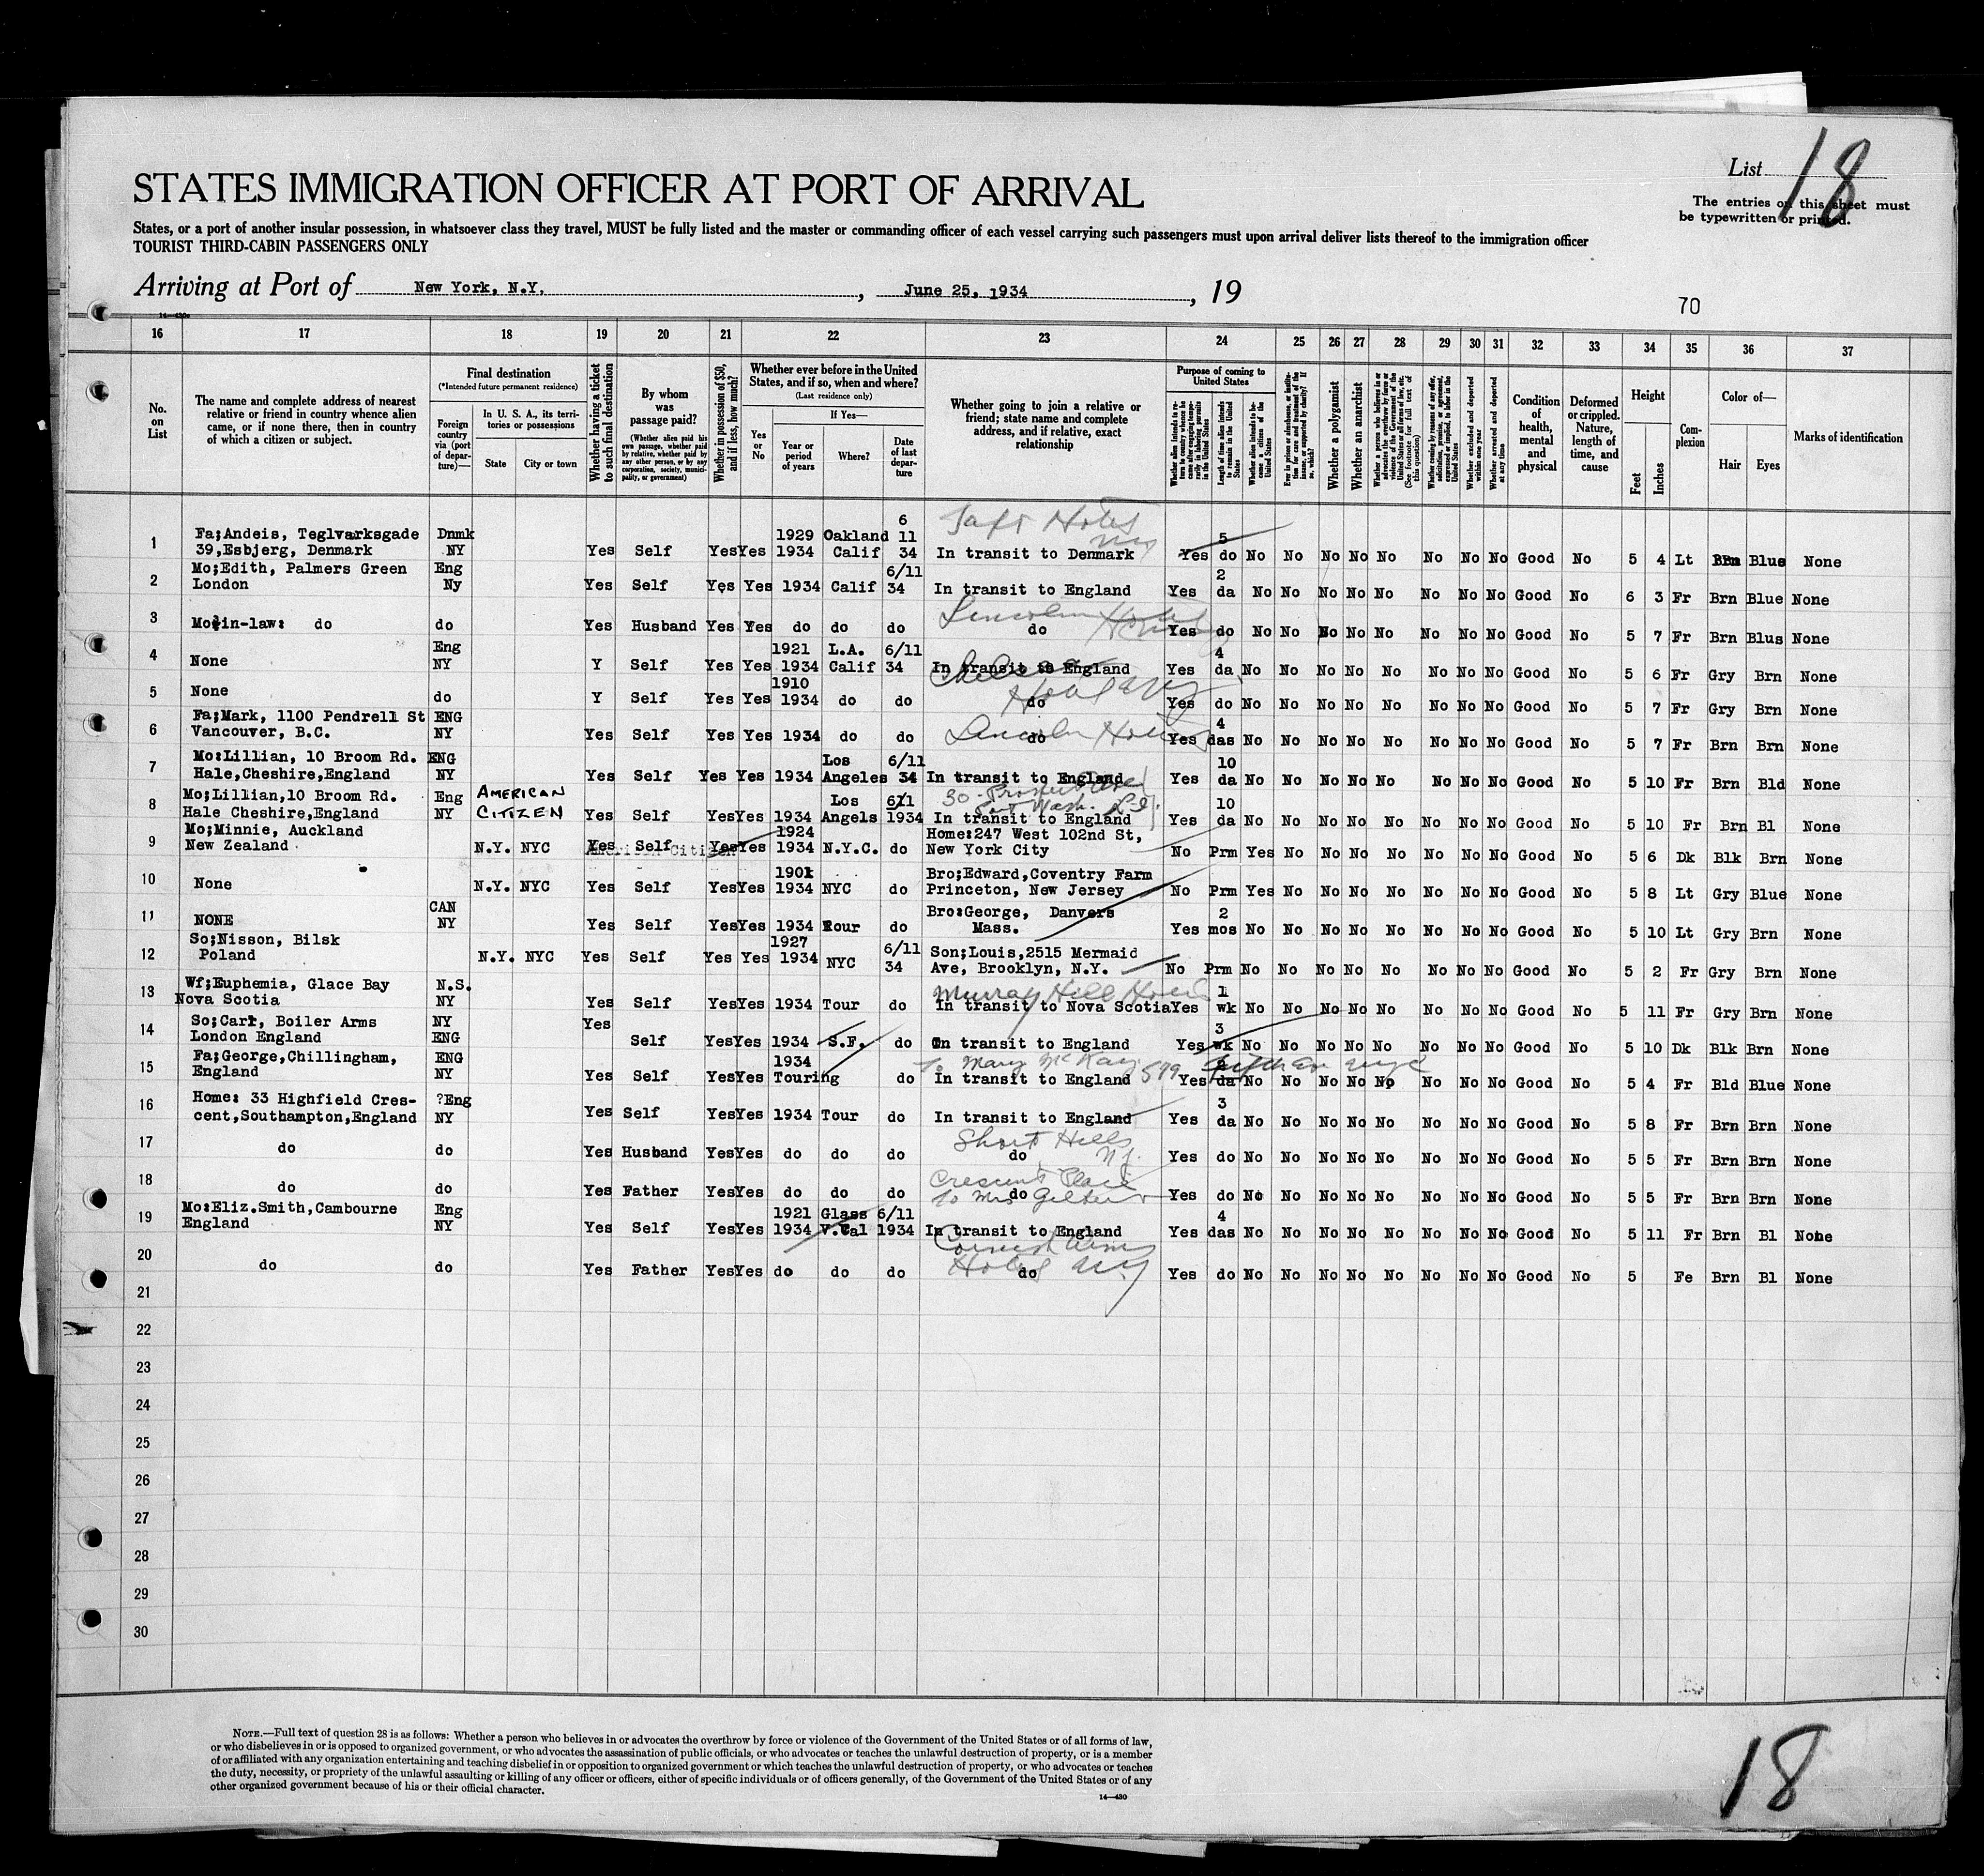 List 18
STATES IMMIGRATION OFFICER AT PORT OF ARRIVAL
The entries on this sheet must
be typewritten or printed.
States, or a port of another insular possession, in whatsoever class they travel, MUST be fully listed and the master or commanding officer of each vessel carrying such passengers must upon arrival deliver lists thereof to the immigration officer
TOURIST THIRD-CABIN PASSENGERS ONLY
Arriving at Port of New York, N.Y. , June 25, 1934 , 19
70
16 17 18 19 20 21 22 23 24 25 26 27 28 29 30 31 32 33 34 35 36 37
No. on List
The name and complete address of nearest relative or friend in country whence alien came, or if none there, then in country of which a citizen or subject.
Final destination
(*Intended future permanent residence)
Foreign country via (port of departure)—
In U. S. A., its territories or possessions
State
City or town
Whether having a ticket to such final destination
By whom was passage paid?
(Whether alien paid his own passage, whether paid by relative, whether paid by any other person, or by any corporation, society, municipality, or government)
Whether in possession of $50, and if less, how much?
Whether ever before in the United States, and if so, when and where?
(Last residence only)
Yes or No
If Yes—
Year or period of years
Where?
Date of last departure
Whether going to join a relative or friend; state name and complete address, and if relative, exact relationship
Purpose of coming to United States
Length of time alien intends to remain in the United States
Whether alien intends to become a citizen of the United States
Whether a polygamist
Whether an anarchist
Whether excluded and deported within one year
Whether arrested and deported at any time
Condition of health, mental and physical
Deformed or crippled. Nature, length of time, and cause
Height
Feet
Inches
Complexion
Color of—
Hair
Eyes
Marks of identification
1 Fa;Andeis, Teglvarksgade 39,Esbjerg, Denmark Dnmk NY Yes Self Yes Yes 1929 1934 Oakland Calif 6 11 34 Taft Hotel NY In transit to Denmark Yes 5 do No No No No No No No No Good No 5 4 Lt Brn Blue None
2 Mo;Edith, Palmers Green London Eng Ny Yes Self Yes Yes 1934 Calif 6/11 34 In transit to England Yes 2 da No No No No No No No No Good No 6 3 Fr Brn Blue None
3 Mo;in-law: do do Yes Husband Yes Yes do do do Lincoln Hotel do Yes do No No No No No No No No Good No 5 7 Fr Brn Blus None
4 None Eng NY Y Self Yes Yes 1921 1934 L.A. Calif 6/11 34 In transit to England Yes 4 da No No No No No No No No Good No 5 6 Fr Gry Brn None
5 None do Y Self Yes Yes 1910 1934 do do Hotel NY do Yes do No No No No No No No No Good No 5 7 Fr Gry Brn None
6 Fa;Mark, 1100 Pendrell St Vancouver, B.C. ENG NY Yes Self Yes Yes 1934 do do Lincoln Hotel do Yes 4 das No No No No No No No No Good No 5 7 Fr Brn Brn None
7 Mo:Lillian, 10 Broom Rd. Hale,Cheshire,England ENG NY Yes Self Yes Yes 1934 Los Angeles 6/11 34 In transit to England Yes 10 da No No No No No No No No Good No 5 10 Fr Brn Bld None
8 Mo;Lillian,10 Broom Rd. Hale Cheshire,England Eng NY AMERICAN CITIZEN Yes Self Yes Yes 1934 Los Angels 6/11 1934 30 Prospect Port Wash. L.I. In transit to England Yes 10 da No No No No No No No No Good No 5 10 Fr Brn Bl None
9 Mo;Minnie, Auckland New Zealand N.Y. NYC American Citizen Yes Self Yes Yes 1924 1934 N.Y.C. do Home:247 West 102nd St, New York City No Prm Yes No No No No No No No Good No 5 6 Dk Blk Brn None
10 None N.Y. NYC Yes Self Yes Yes 1901 1934 NYC do Bro;Edward,Coventry Farm Princeton, New Jersey No Prm Yes No No No No No No No Good No 5 8 Lt Gry Blue None
11 NONE CAN NY Yes Self Yes Yes 1934 Tour do Bro:George, Danvers Mass. Yes 2 mos No No No No No No No No Good No 5 10 Lt Gry Brn None
12 So;Nisson, Bilsk Poland N.Y. NYC Yes Self Yes Yes 1927 1934 NYC 6/11 34 Son;Louis,2515 Mermaid Ave, Brooklyn, N.Y. No Prm No No No No No No No No Good No 5 2 Fr Gry Brn None
13 Wf;Euphemia, Glace Bay Nova Scotia N.S. NY Yes Self Yes Yes 1934 Tour do Murray Hill Hotel In transit to Nova Scotia Yes 1 wk No No No No No No No No Good No 5 11 Fr Gry Brn None
14 So;Carl, Boiler Arms London England NY ENG Yes Self Yes Yes 1934 S.F. do In transit to England Yes 3 wk No No No No No No No No Good No 5 10 Dk Blk Brn None
15 Fa;George,Chillingham, England ENG NY Yes Self Yes Yes 1934 Touring do To Mary McKay 599 In transit to England Yes da No No No No No No No No Good No 5 4 Fr Bld Blue None
16 Home: 33 Highfield Crescent,Southampton,England ?Eng NY Yes Self Yes Yes 1934 Tour do In transit to England Yes 3 da No No No No No No No No Good No 5 8 Fr Brn Brn None
17 do do Yes Husband Yes Yes do do do Short Hills NJ. do Yes do No No No No No No No No Good No 5 5 Fr Brn Brn None
18 do do Yes Father Yes Yes do do do Crescent Place To Mrs Gilbert do Yes do No No No No No No No No Good No 5 5 Fr Brn Brn None
19 Mo:Eliz.Smith,Cambourne England Eng NY Yes Self Yes Yes 1921 1934 Glass V.Cal 6/11 1934 In transit to England Yes 4 das No No No No No No No No Good No 5 11 Fr Brn Bl None
20 do do Yes Father Yes Yes do do do Cornish Arms Hotel NY do Yes do No No No No No No No No Good No 5 Fe Brn Bl None
21
22
23
24
25
26
27
28
29
30
NOTE.—Full text of question 28 is as follows: Whether a person who believes in or advocates the overthrow by force or violence of the Government of the United States or of all forms of law,
or who disbelieves in or is opposed to organized government, or who advocates the assassination of public officials, or who advocates or teaches the unlawful destruction of property, or is a member
of or affiliated with any organization entertaining and teaching disbelief in or opposition to organized government or which teaches the unlawful destruction of property, or who advocates or teaches
the duty, necessity, or propriety of the unlawful assaulting or killing of any officer or officers, either of specific individuals or of officers generally, of the Government of the United States or of any
other organized government because of his or their official character.
14—430
18